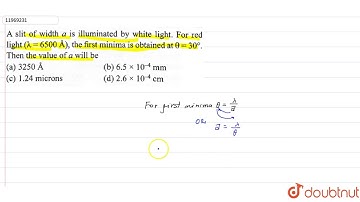 11969231
A slit of width a is illuminated by white light. For red
light (λ = 6500 Å), the first minima is obtained at θ = 30°.
Then the value of a will be
(a) 3250 Å (b) 6.5 × 10⁻⁴ mm
(c) 1.24 microns (d) 2.6 × 10⁻⁴ cm
For first minima θ = λ/a
or a = λ/θ
doubtnut